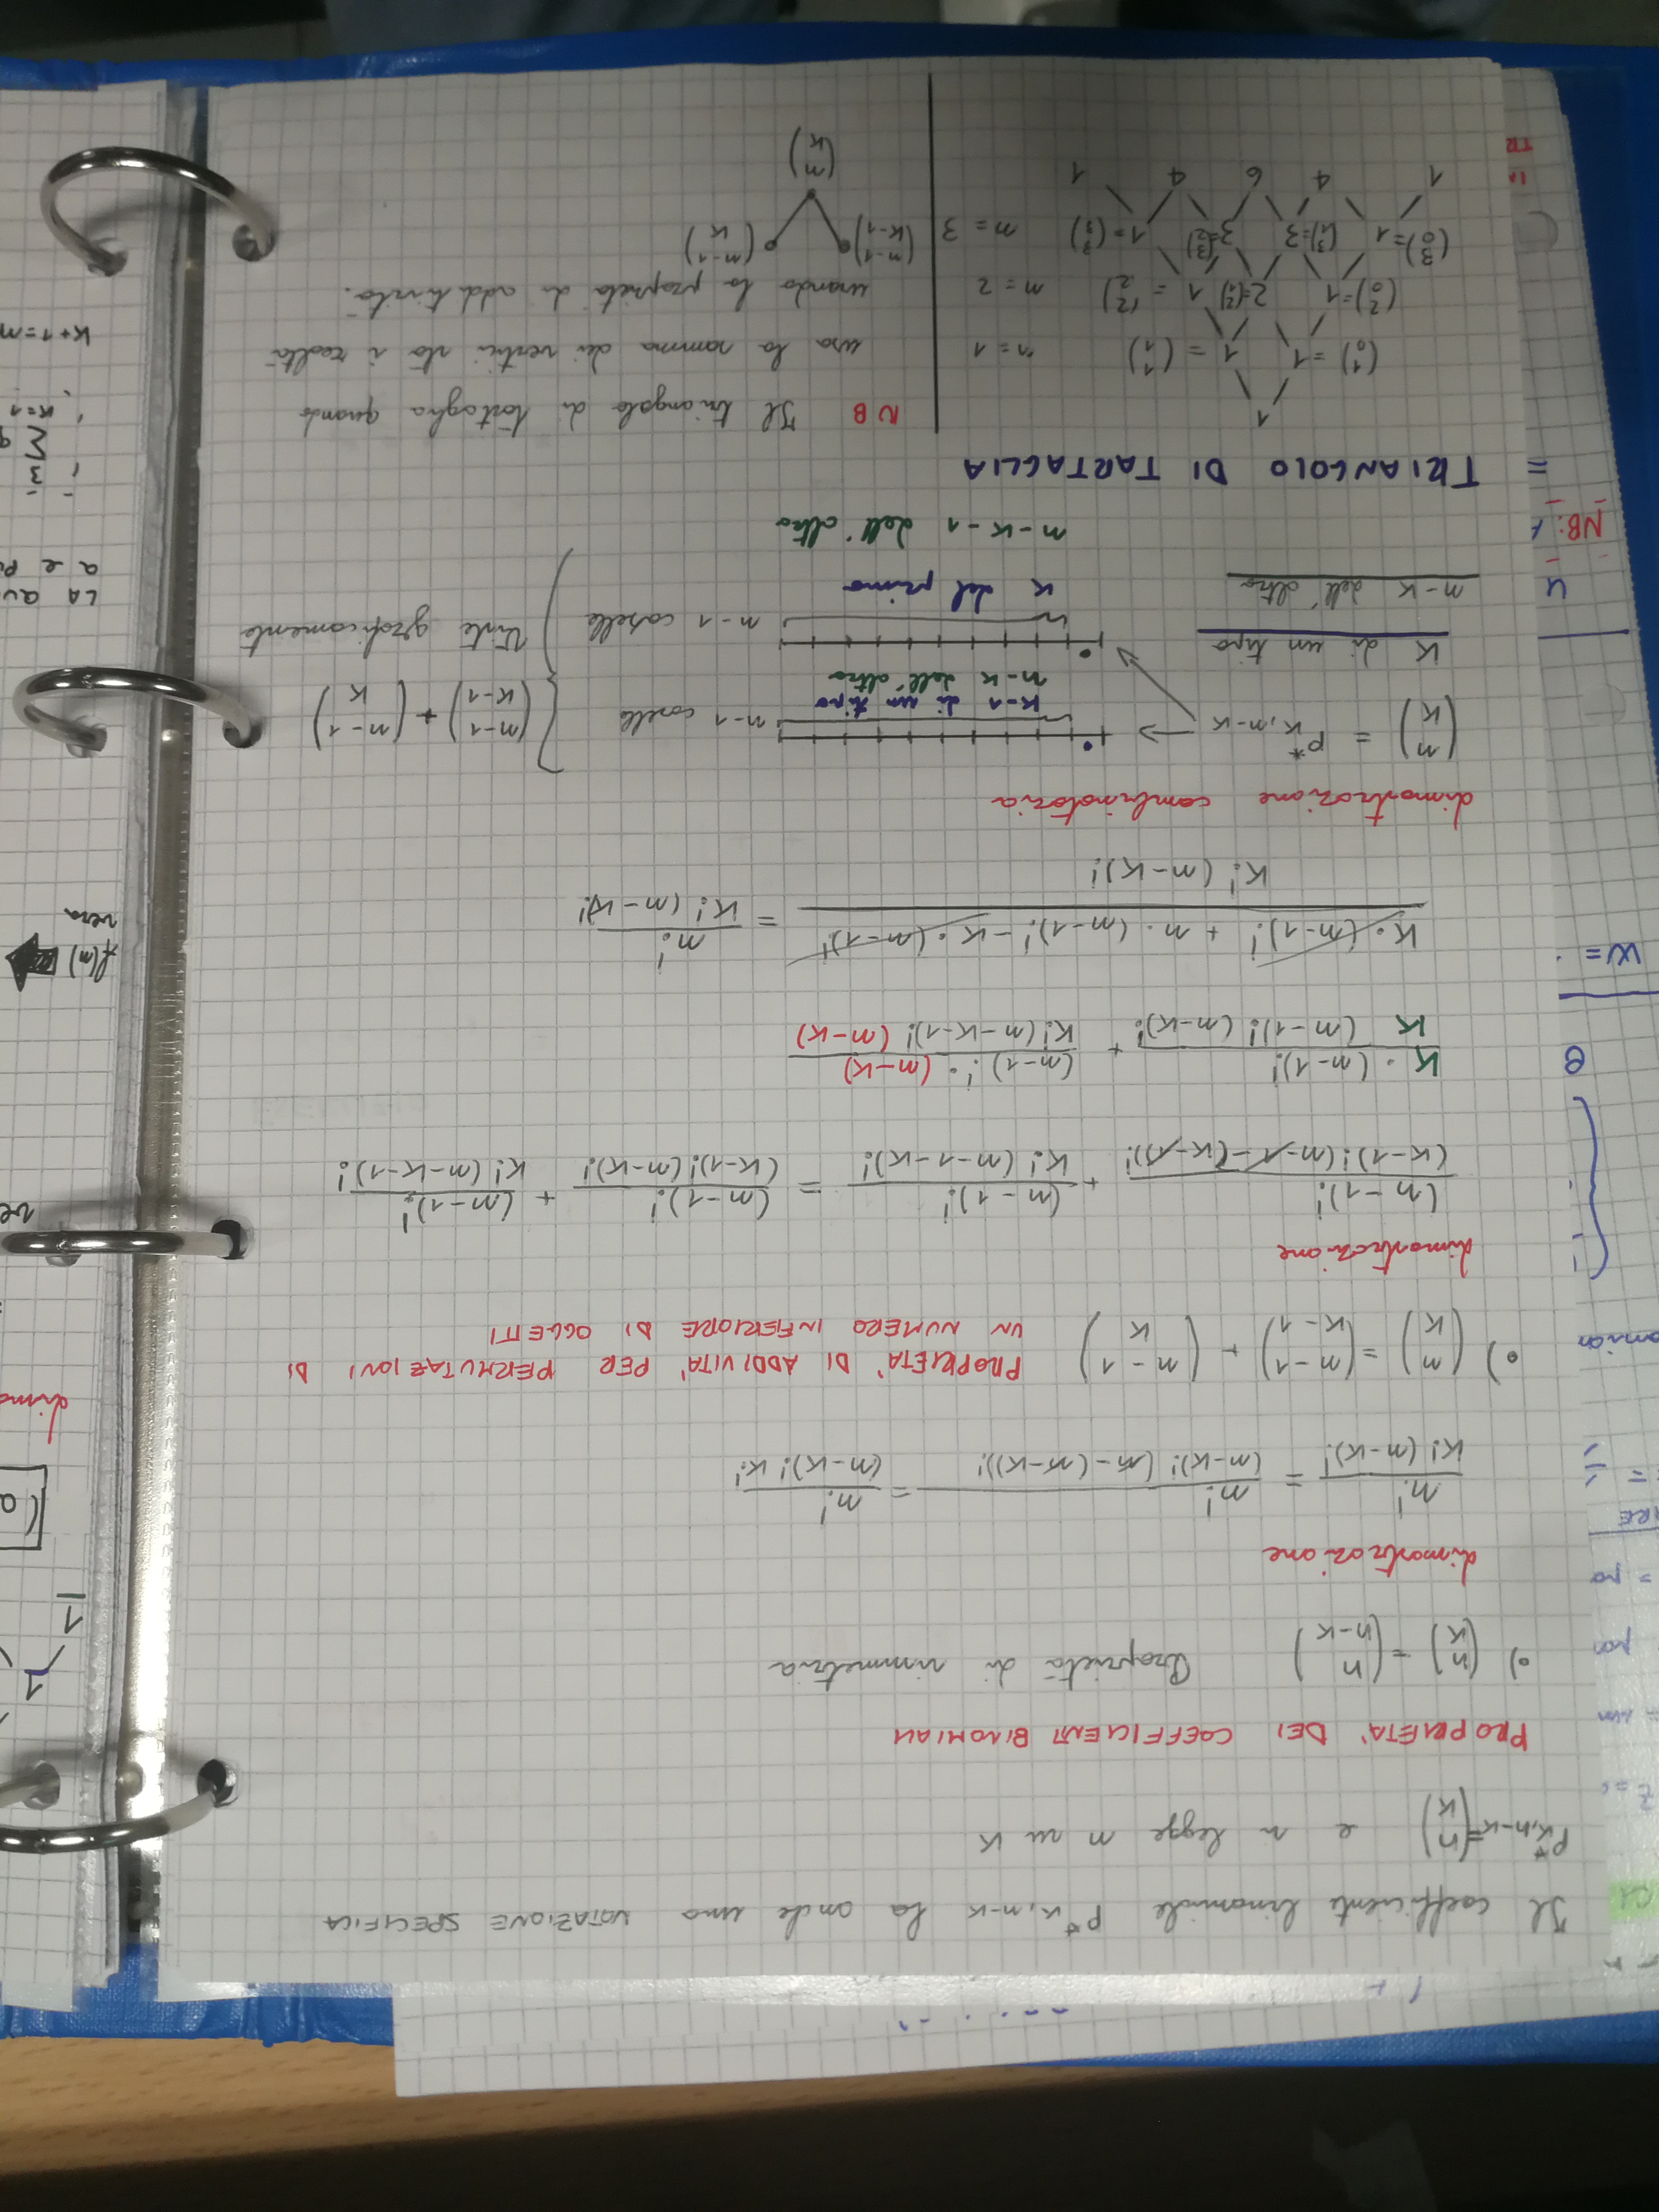 Il coefficiente binomiale P*K,n-K ha anche una NOTAZIONE SPECIFICA
P*K,n-K = (n K) e si legge n su K
PROPRIETA' DEI COEFFICIENTI BINOMIALI
•) (n K) = (n n-K) Proprietà di simmetria
dimostrazione
n! / K! (n-K)! = n! / (n-K)! (n-(n-K))! = n! / (n-K)! K!
•) (n K) = (n-1 K-1) + (n-1 K) PROPRIETA' DI ADDIVITA' PER PERMUTAZIONI DI
UN NUMERO INFERIORE DI OGGETTI
dimostrazione
(n-1)! / (K-1)! (n-1-(K-1))! + (n-1)! / K! (n-1-K)! = (n-1)! / (K-1)! (n-K)! + (n-1)! / K! (n-K-1)!
K · (n-1)! / K (n-1)! (n-K)! + (n-1)! · (n-K) / K! (n-K-1)! (n-K)
K · (n-1)! + n · (n-1)! - K · (n-1)! / K! (n-K)! = n! / K! (n-K)!
dimostrazione combinatoria
(n K) = P*K,n-K → n-1 caselle
K-1 di un tipo
n-K dell'altro
(n-1 K-1) + (n-1 K)
K di un tipo
n-1 caselle
Viste graficamente
n-K dell'altro
K del primo
n-K-1 dell'altro
= TRIANGOLO DI TARTAGLIA
1
(1 0) = 1 1 = (1 1) n = 1
(2 0) = 1 2 = (2 1) 1 = (2 2) n = 2
(3 0) = 1 (3 1) = 3 3 = (3 2) 1 = (3 3) n = 3
1 4 6 4 1
NB Il triangolo di tartaglia quando
usa la somma dei vertici sta i realtà
usando la proprietà di additività.
(n-1 K-1) (n-1 K)
(n K)
Z =
ARE
W =
u
NB:
1
1
(a
f(n) →
vera
LA QU
a e P
3
Σ
K=1
K+1=n